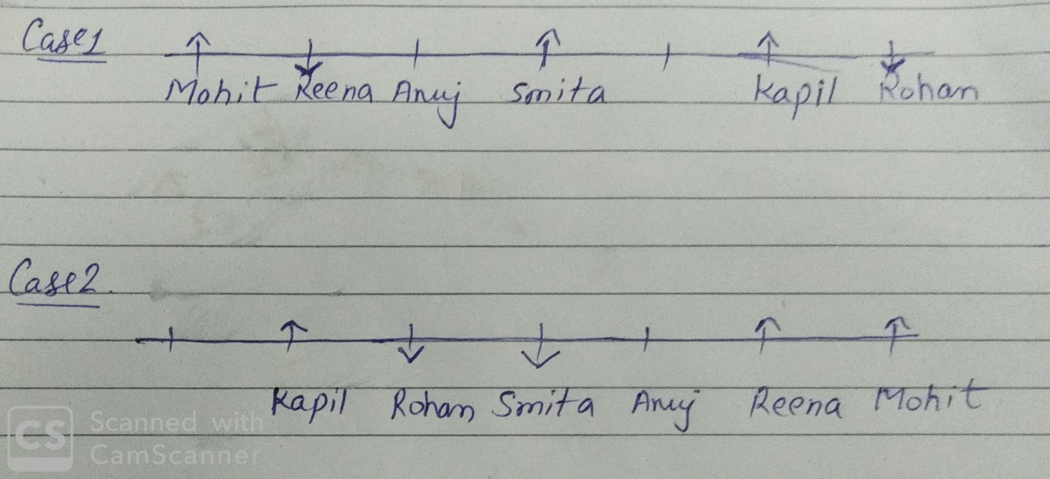 Case1
Mohit Reena Anuj Smita Kapil Rohan
Case2.
Kapil Rohan Smita Anuj Reena Mohit
CS Scanned with
CamScanner